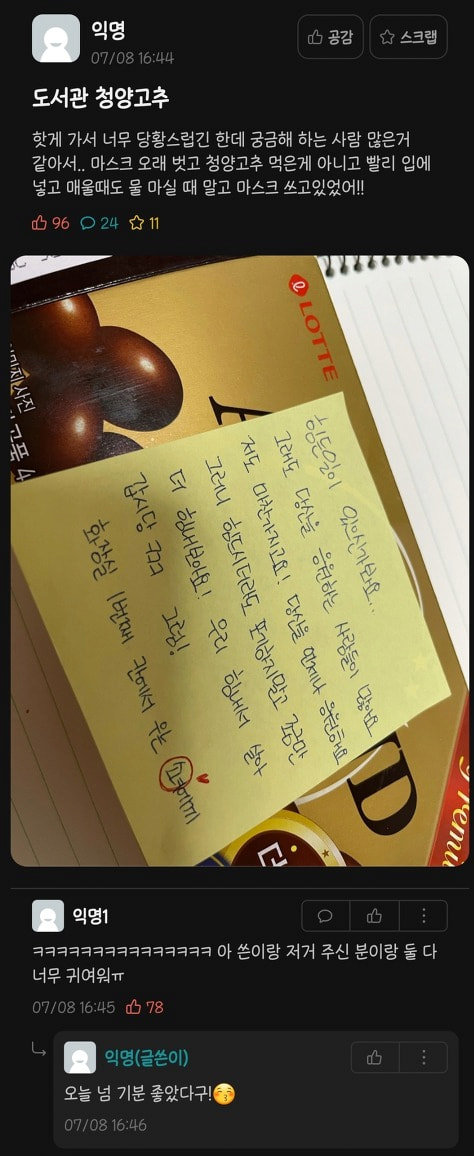 익명
07/08 16:44
공감
스크랩
도서관 청양고추
핫게 가서 너무 당황스럽긴 한데 궁금해 하는 사람 많은거
같아서.. 마스크 오래 벗고 청양고추 먹은게 아니고 빨리 입에
넣고 매울때도 물 마실 때 말고 마스크 쓰고있었어!!
96
24
11
LOTTE
힘든일이 있으신가봐요..
그래도 당신을 응원하는 사람들이 많아요
저도 마찬가지고요! 당신을 언제나 응원해요
그러니 힘드시더라도 포기하지말고 조금만
더 힘내봐요! 우리 힘내서 살아
갑시당 구다 그럼!
화장실 1번째 칸에서 우는
익명1
ㅋㅋㅋㅋㅋㅋㅋㅋㅋㅋㅋㅋㅋㅋㅋ 아 쓴이랑 저거 주신 분이랑 둘 다
너무 귀여워ㅠ
07/08 16:45
78
익명(글쓴이)
오늘 넘 기분 좋았다구!😚
07/08 16:46